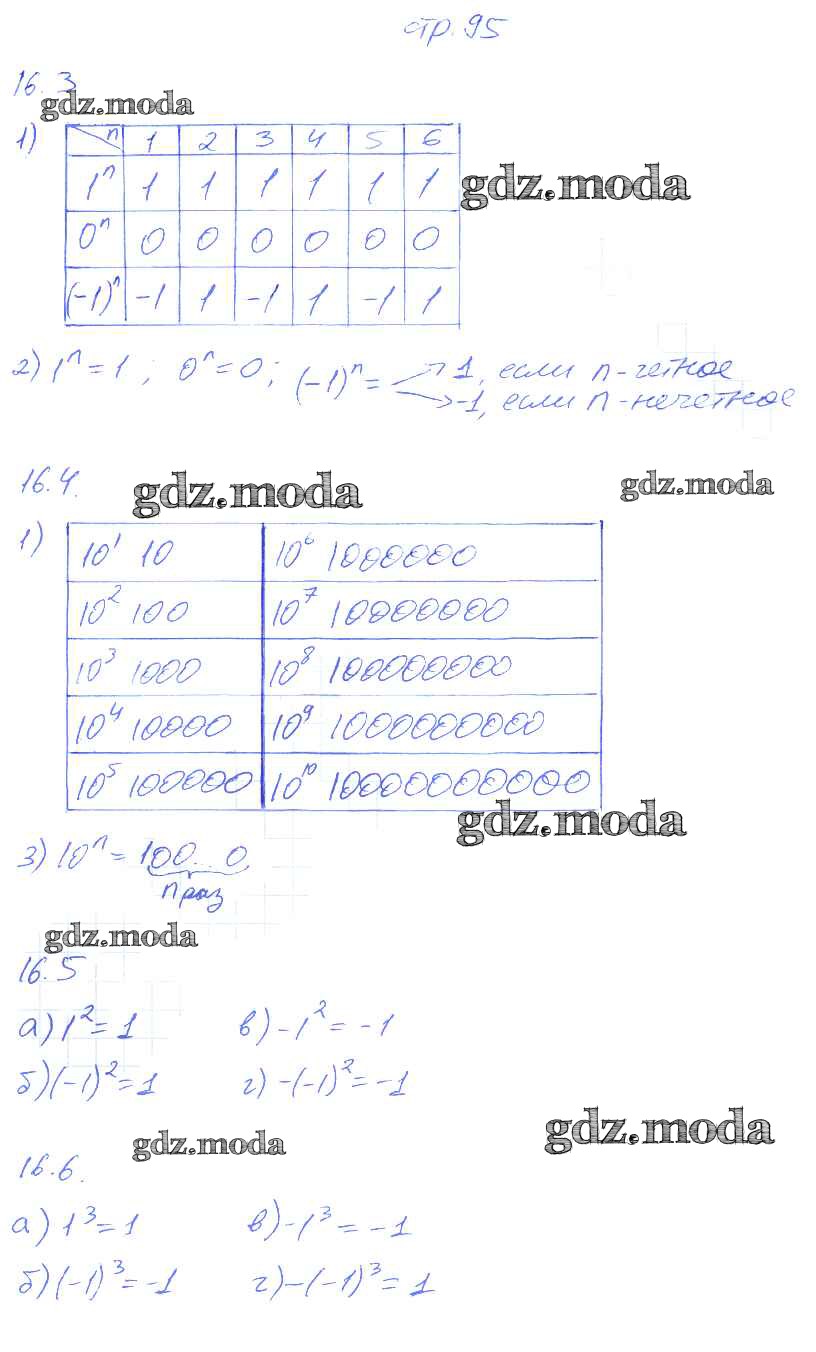 стр. 95
16.3
gdz.moda
1)
n 1 2 3 4 5 6
1ⁿ 1 1 1 1 1 1
gdz.moda
0ⁿ 0 0 0 0 0 0
(-1)ⁿ -1 1 -1 1 -1 1
2) 1ⁿ = 1 ; 0ⁿ = 0 ; (-1)ⁿ = 1, если n - четное
-1, если n - нечетное
16.4.
gdz.moda
gdz.moda
1)
10¹ 10 10⁶ 1000000
10² 100 10⁷ 10000000
10³ 1000 10⁸ 100000000
10⁴ 10000 10⁹ 1000000000
10⁵ 100000 10¹⁰ 10000000000
gdz.moda
3) 10ⁿ = 100...0
n раз
gdz.moda
16.5
а) 1² = 1 в) -1² = -1
б) (-1)² = 1 г) -(-1)² = -1
gdz.moda
gdz.moda
16.6.
а) 1³ = 1 в) -1³ = -1
б) (-1)³ = -1 г) -(-1)³ = 1